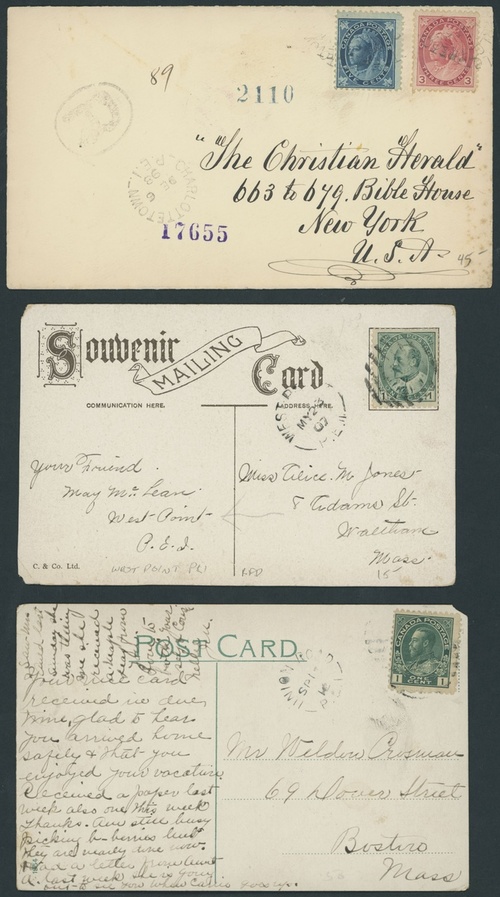 89
2110
CANADA POSTAGE
CANADA POSTAGE
FIVE CENTS
3 THREE CENTS 3
"The Christian Herald"
663 to 679. Bible House
New York
U.S.A.
45-
CHARLOTTETOWN P.E.I.
17655
Souvenir
MAILING
Card
COMMUNICATION HERE.
ADDRESS HERE.
CANADA POSTAGE
1 1
WEST P
MY 23
07
P.E.I.
Your Friend.
May McLean
West Point
P.E.I.
Miss Alice M Jones
8 Adams St.
Waltham
Mass.
15-
C. & Co. Ltd.
WEST POINT PEI
RPO
POST CARD
CANADA POSTAGE
1 ONE CENT 1
UNION
SP
Your nice card
received in due
time, glad to hear
you arrived home
safely & that you
enjoyed your vacation
Received a paper last
week also one this week
Thanks. Am still busy
picking b-berries but
they are nearly done now.
Had a letter from Aunt
last week she is going
out to see you when
Mr Weldon Crosman
69 Dover Street
Boston
Mass